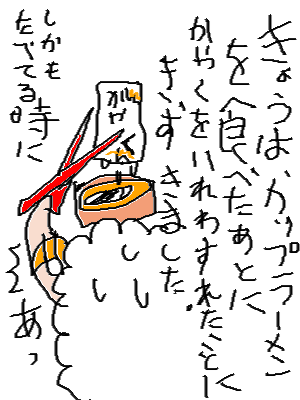 きょうは、カップラーメン
を食べたあとに
かやくをいれわすれたことに
きずきました
かやく
しかも
たべてる時に
あっ